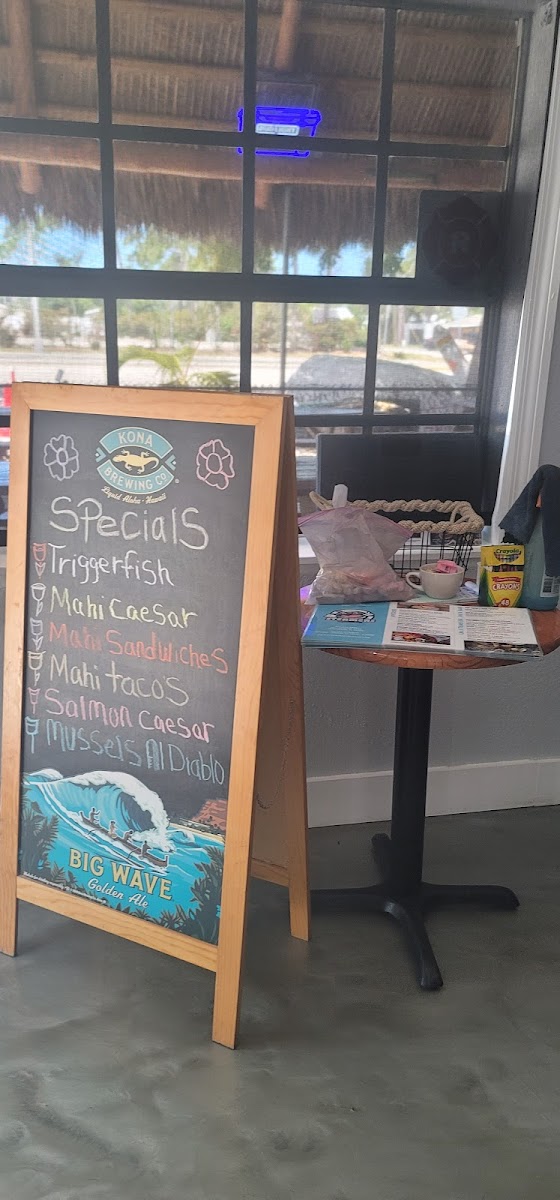 KONA
BREWING CO.
Liquid Aloha · Hawaii
Specials
Triggerfish
Mahi Caesar
Mahi Sandwiches
Mahi tacos
Salmon caesar
Mussels Al Diablo
BIG WAVE
Golden Ale
Crayola
CRAYONS
R